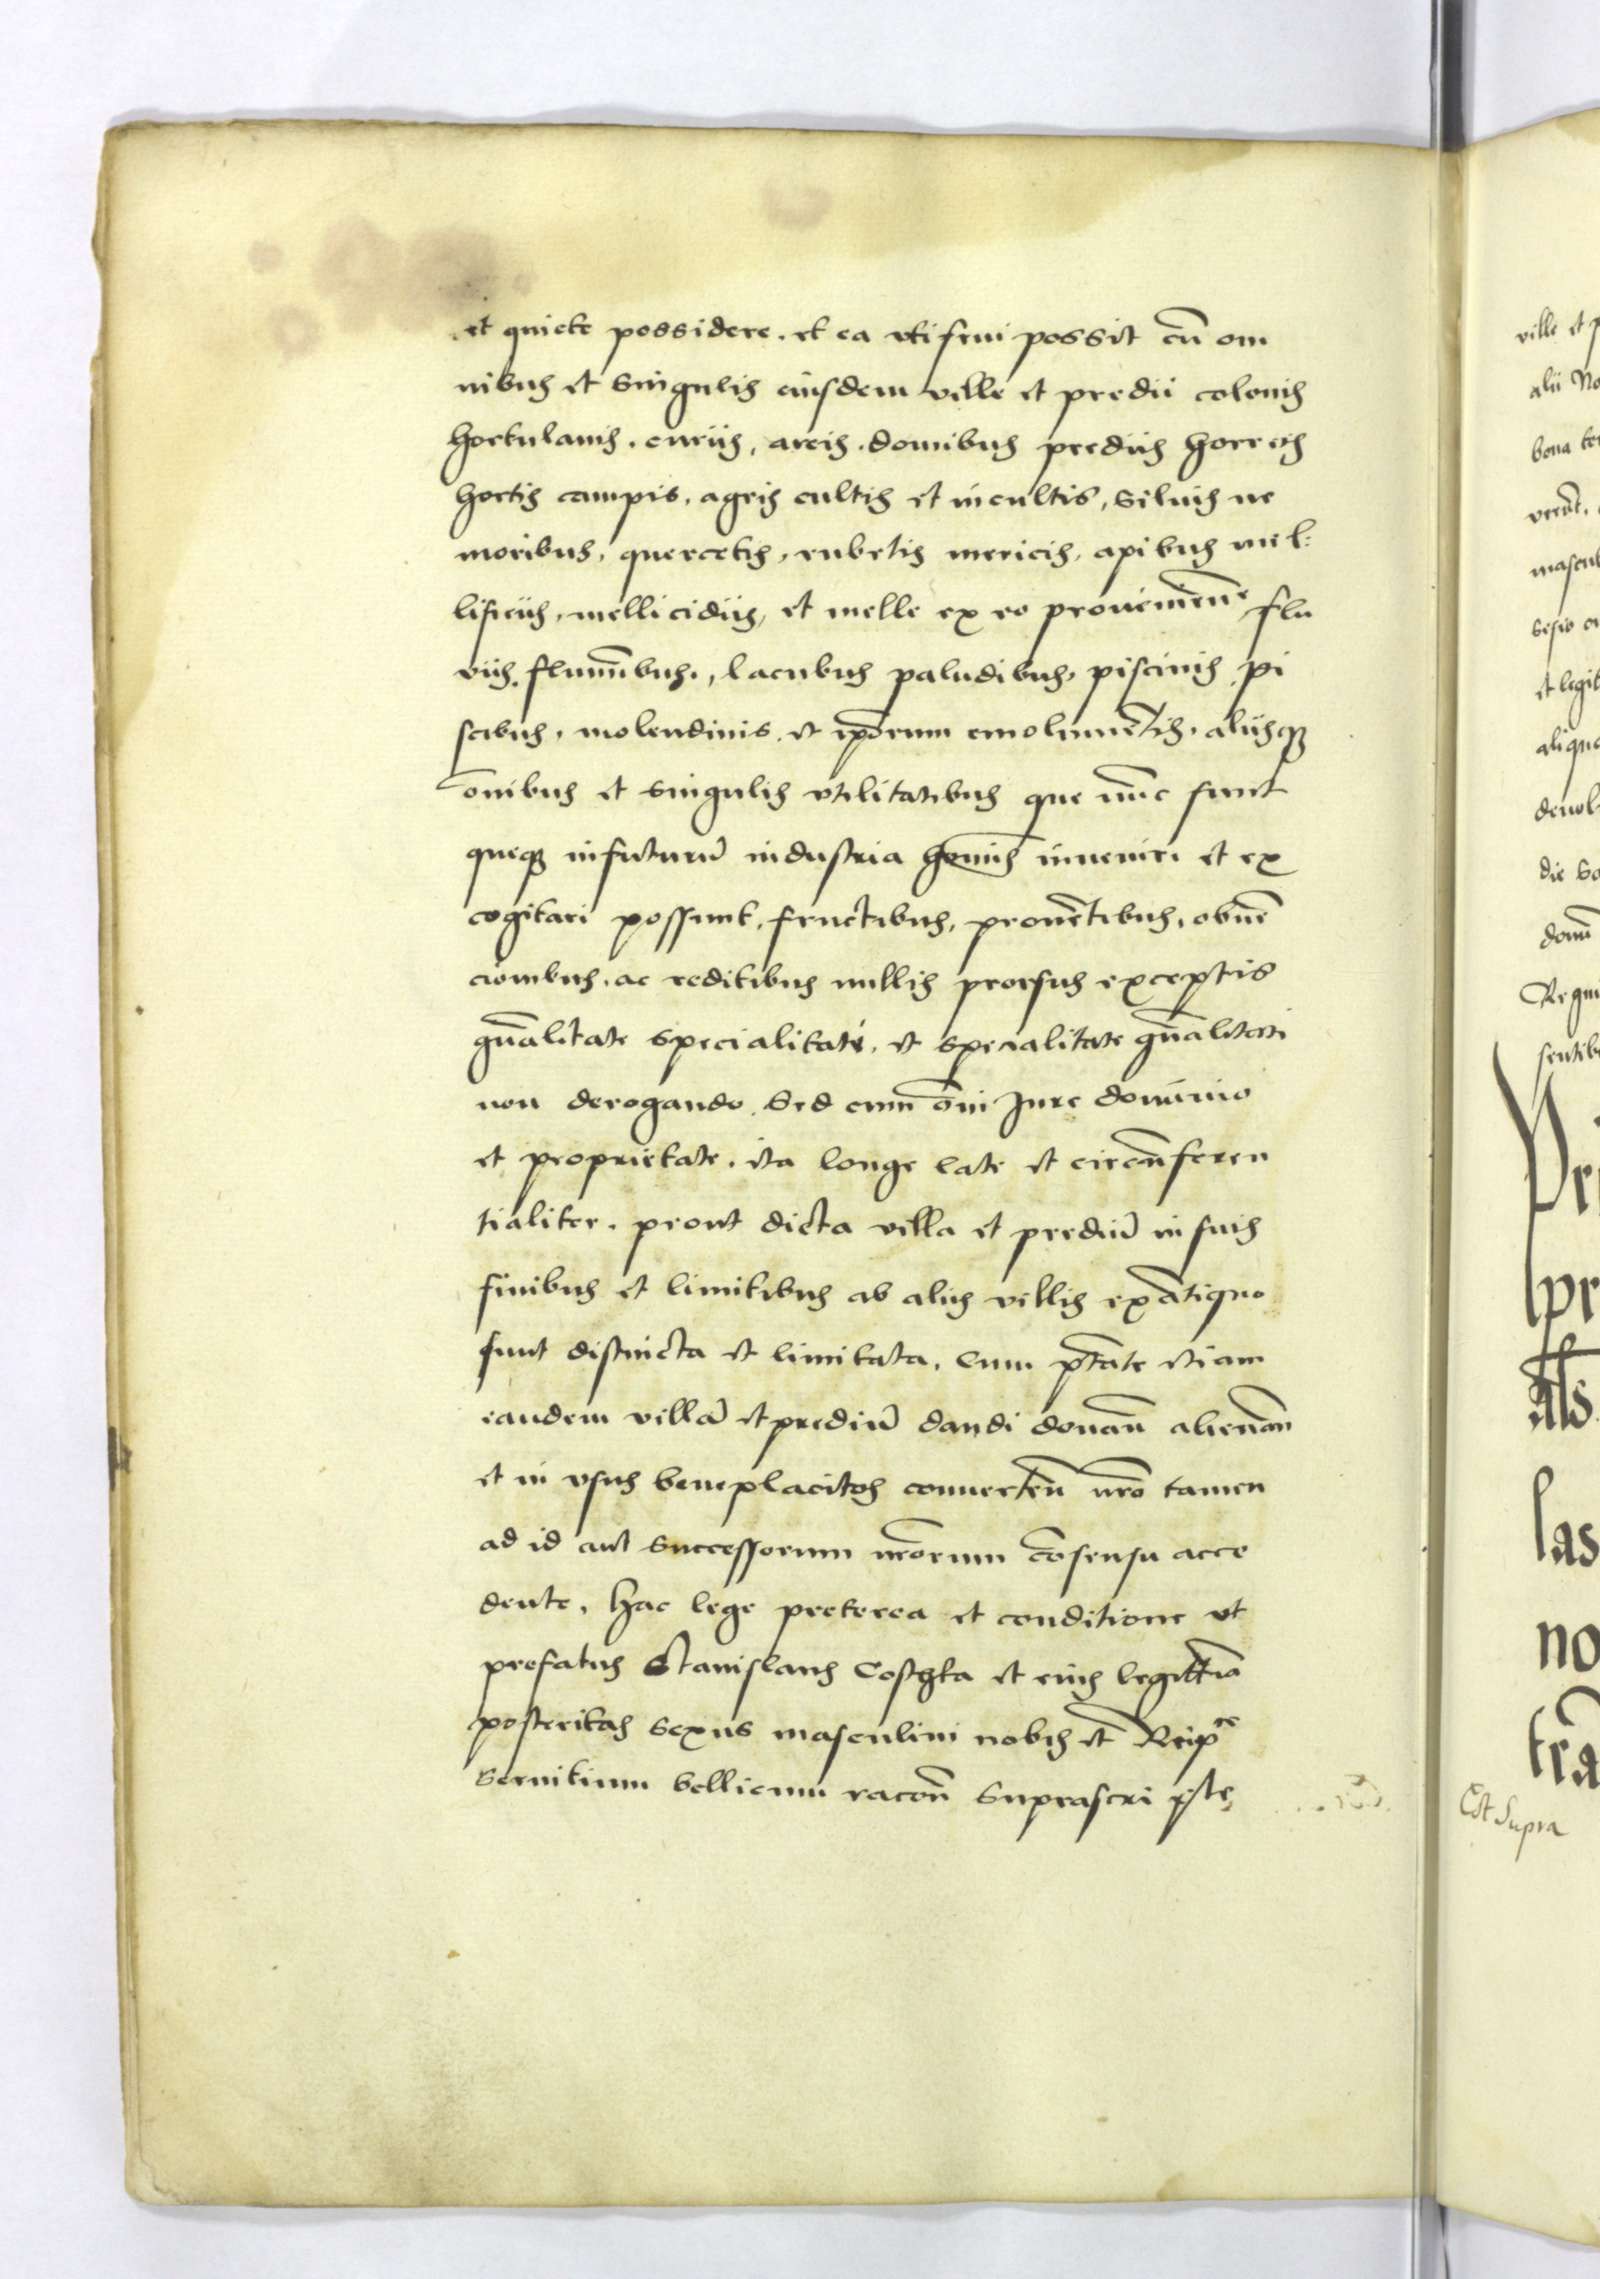 et quiete possidere. et ea uti frui possit cū om
nibus et singulis eiusdem ville et predii colonis
hortulanis. curiis, areis. domibus prediis horreis
hortis campis. agris cultis et incultis, siluis ne
moribus, quercetis, rubetis mericis, apibus mel:
lificiis, mellicidiis, et melle ex eo proueniēne flu
viis fluminībus., lacubus paludibus, piscinis pi
scibus, molendinis et ip̄orum emolumētis, aliisq3
ōnibus et singulis vtilitatibus que nūc sunt
queq3 infuturū industria homīs inueniri et ex
cogitari possunt, fructibus, prouētibus, obuē
cionibus. ac reditibus nullis prorsus exceptis
gn̄alitate specialitati, et specialitate gn̄alitati
non derogando. Sed cum ōni Jure dominio
et proprietate. ita longe late et circūnferen
tialiter. prout dicta villa et prediū in suis
finibus et limitibus ab aliis villis ex ātiquo
sunt distincta et limitata. Cum ptāte etiam
eandem villā et prediū dandi donan̄ alienan̄
et in vsus beneplacitos conuerten̄ nr̄o tamen
ad id aut successorum nr̄orum cōsensu acce
dente, hac lege preterea et conditione ut
prefatus Stanislaus Costhka et eius legittīa
posteritas sexus masculini nobis et Reip̄ce
seruitium bellicum racōn̄ suprascri
ville et
alii No
bona
verēt.
mascul
et legit
aliqua
deuol
die
donū
Regni
sentib
Pr
pr
Als
las
no
trā
Est Supra